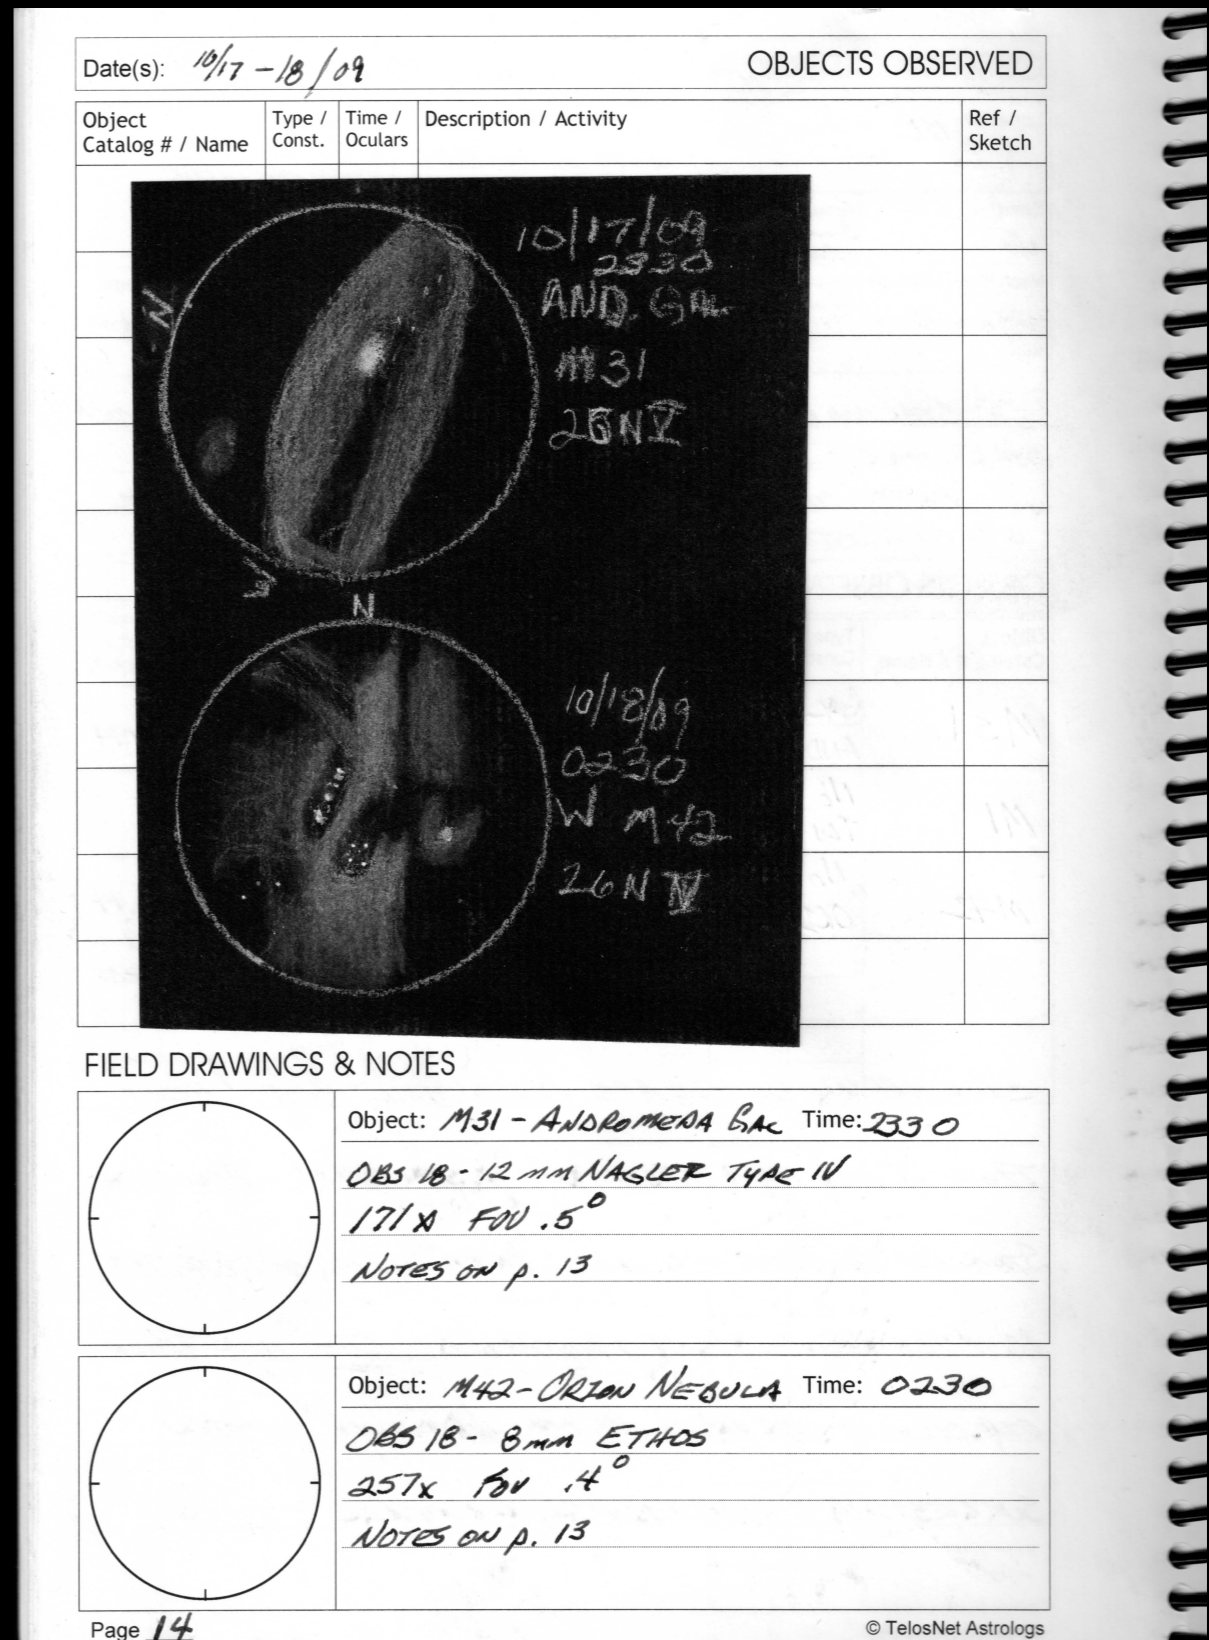 Date(s): 10/17 - 18/09 OBJECTS OBSERVED
Object Catalog # / Name
Type / Const.
Time / Oculars
Description / Activity
Ref / Sketch
10/17/09
2330
AND. GAL
M31
26 N V
N
W
N
10/18/09
0230
W M42
26 N IV
FIELD DRAWINGS & NOTES
Object: M31 - ANDROMEDA GAL Time: 2330
OBS 18 - 12 mm NAGLER TYPE IV
171x FOV .5°
NOTES ON p. 13
Object: M42 - ORION NEBULA Time: 0230
OBS 18 - 8mm ETHOS
257x FOV .4°
NOTES ON p. 13
Page 14
© TelosNet Astrologs